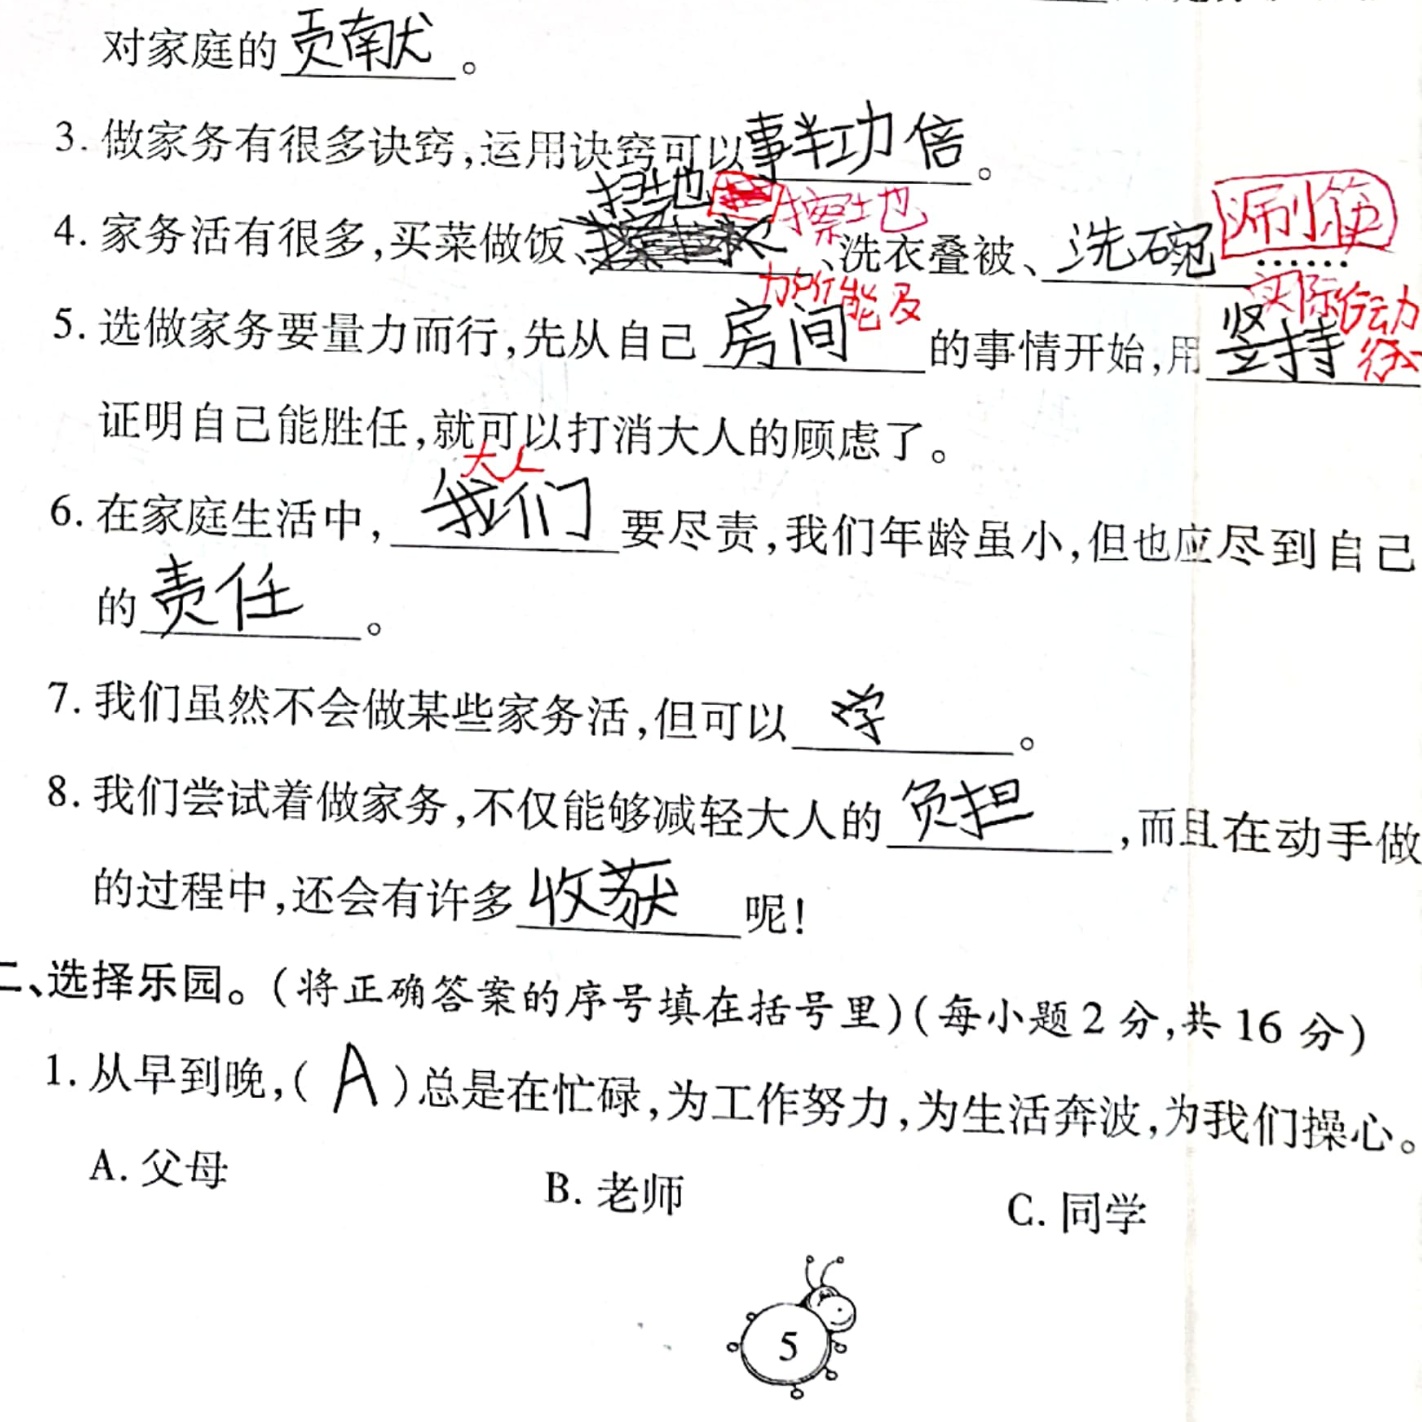 对家庭的贡献。
3. 做家务有很多诀窍,运用诀窍可以事半功倍。
扫地 擦地
4. 家务活有很多,买菜做饭、、洗衣叠被、洗碗 涮筷……
力所能及 实际行动
5. 选做家务要量力而行,先从自己房间的事情开始,用坚持
证明自己能胜任,就可以打消大人的顾虑了。
大人
6. 在家庭生活中,我们要尽责,我们年龄虽小,但也应尽到自己
的责任。
7. 我们虽然不会做某些家务活,但可以学。
8. 我们尝试着做家务,不仅能够减轻大人的负担,而且在动手做
的过程中,还会有许多收获呢!
二、选择乐园。(将正确答案的序号填在括号里)(每小题2分,共16分)
1. 从早到晚,(A)总是在忙碌,为工作努力,为生活奔波,为我们操心。
A. 父母 B. 老师 C. 同学
5